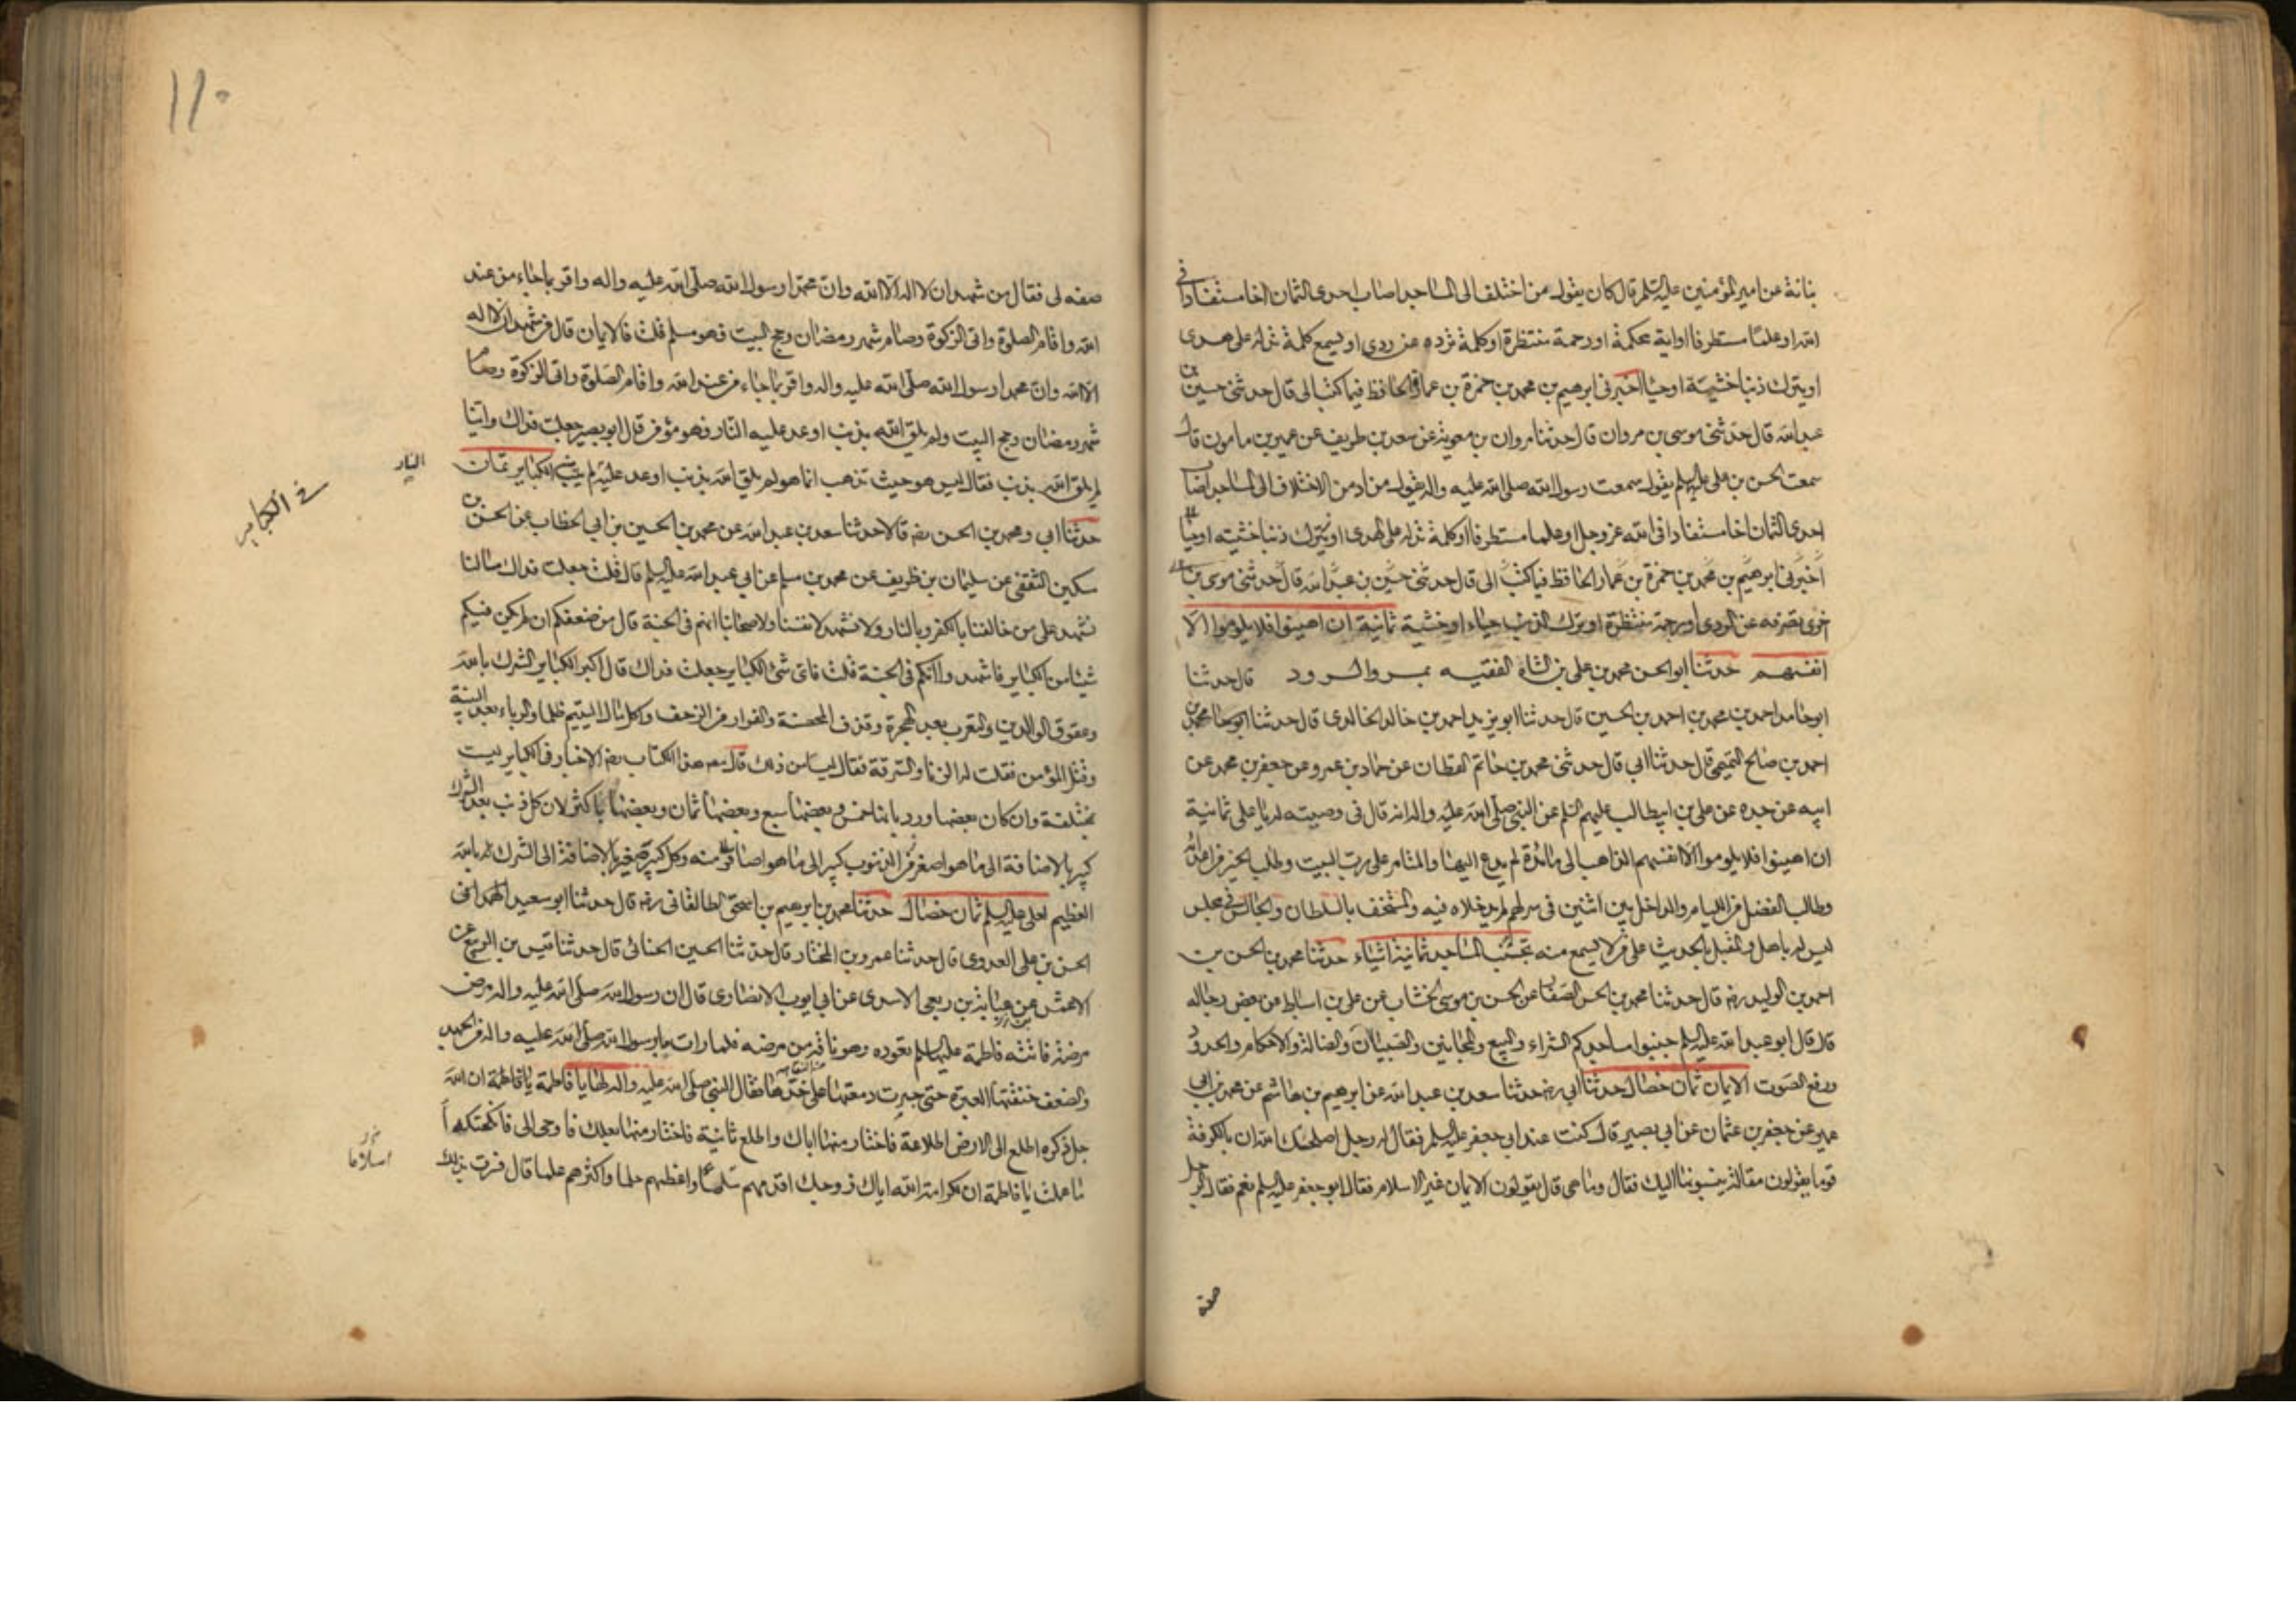 نباتة عن امير المؤمنين عليه السلم قال كان يقول من اختلف الى المساجد اصاب احدى الثمان اخا مستفادا في
الله او علما مستطرفا او اية محكمة او رحمة منتظرة او كلمة ترده عن ردى او يسمع كلمة تدله على هدى
او يترك ذنبا خشية او حياء اخبرنى ابرهيم بن محمد بن حمزة بن عمارة الحافظ فيما كتب الى قال حدثنى حسين بن
عبد الله قال حدثنى موسى بن مروان قال حدثنا مروان بن معوية عن سعد بن طريف عن عمير بن مامون قال
سمعت الحسن بن على عليهما السلم يقول سمعت رسول الله صلى الله عليه واله يقول من ادمن الاختلاف الى المساجد اصاب
احدى الثمان اخا مستفادا فى الله عز وجل او علما مستطرفا او كلمة تدله على الهدى او يترك ذنبا خشية او حياء
اخبرنى ابرهيم بن محمد بن حمزة بن عمار الحافظ فيما كتب الى قال حدثنى حسين بن عبد الله قال حدثنى موسى بن
اخرى تصرفه عن الردى او رحمة منتظرة او ترك الذنب حياء او خشية ثمانية ان اهينوا فلا يلوموا الا
انفسهم حدثنا ابو الحسن محمد بن على بن الشاه الفقيه بمرو الرود قال حدثنا
ابو حامد احمد بن محمد بن احمد بن الحسين قال حدثنا ابو يزيد احمد بن خالد الخالدى قال حدثنا محمد بن
احمد بن صالح التميمى قال حدثنا ابى قال حدثنى محمد بن حاتم القطان عن حماد بن عمرو عن جعفر بن محمد عن
ابيه عن جده عن على بن ابيطالب عليهم السلم عن النبى صلى الله عليه واله انه قال فى وصيته له يا على ثمانية
ان اهينوا فلا يلوموا الا انفسهم الذاهب الى مائدة لم يدع اليها والمتامر على رب البيت وطالب الخير من اعدائه
وطالب الفضل من اللئيام والداخل بين اثنين فى سر لهم لم يدخلاه فيه والمستخف بالسلطان والجالس في مجلس
ليس له باهل والمقبل بالحديث على من لا يسمع منه تجنب المساجد ثمانية اشياء حدثنا محمد بن الحسن بن
احمد بن الوليد رضه قال حدثنا محمد بن الحسن الصفار عن الحسن بن موسى الخشاب عن على بن اسباط عن بعض رجاله
قال قال ابو عبد الله عليه السلم جنبوا مساجدكم الشراء والبيع والمجانين والصبيان والضالة والاحكام والحدود
ورفع الصوت الايمان ثمان خصال حدثنا ابى رضه حدثنا سعد بن عبد الله عن ابرهيم بن هاشم عن محمد بن ابى
عمير عن جعفر بن عثمان عن ابى بصير قال كنت عند ابى جعفر عليه السلم فقال له رجل اصلحك الله ان بالكوفة
قوما يقولون مقالة ينسبونها اليك فقال وما هى قال يقولون الايمان غير الاسلام فقال ابو جعفر عليه السلم نعم فقال الرجل
صفه
١١٠
صفه لى فقال من شهد ان لا اله الا الله وان محمدا رسول الله صلى الله عليه واله واقر بما جاء من عند
الله واقام الصلوة واتى الزكوة وصام شهر رمضان وحج البيت فهو مسلم قلت فالايمان قال من شهد ان لا اله
الا الله وان محمدا رسول الله صلى الله عليه واله واقر بما جاء من عند الله واقام الصلوة واتى الزكوة وصام
شهر رمضان وحج البيت ولم يلق الله بذنب اوعد عليه النار فهو مؤمن قال ابو بصير جعلت فداك واينا
لم يلق الله بذنب فقال ليس هو حيث تذهب انما هو لم يلق الله بذنب اوعد عليه لم يتب الكباير ثمان
النار
في الكباير
حدثنا ابى ومحمد بن الحسن رضه قالا حدثنا سعد بن عبد الله عن محمد بن الحسين بن ابى الخطاب عن الحسن بن
سكين الثقفى عن سليمان بن ظريف عن محمد بن مسلم عن ابى عبد الله عليه السلم قال قلت جعلت فداك مالنا
نشهد على من خالفنا بالكفر وبالنار ولا نشهد لانفسنا ولاصحابنا انهم فى الجنة قال من ضعفكم ان لم يكن فيكم
شيئا من الكباير فاشهدوا انكم فى الجنة قلت فاى شئ الكباير جعلت فداك قال اكبر الكباير الشرك بالله
وعقوق الوالدين والتعرب بعد الهجرة وقذف المحصنة والفرار من الزحف واكل مال اليتيم ظلما والرباء بعد البينة
وقتل المؤمن فقلت له الزنا والسرقة فقال ليسا من ذلك قال مصنف هذا الكتاب رضه الاخبار فى الكباير ليست
مختلفة وان كان بعضها ورد بانها خمس وبعضها سبع وبعضها ثمان وبعضها باكثر لان كل ذنب بعد الشرك
كبير بالاضافة الى ما هو اصغر من الذنوب كبير الى ما هو اصغر منه وكل كبير صغير بالاضافة الى الشرك بالله
العظيم لعلى عليه السلم ثمان خصال حدثنا محمد بن ابرهيم بن اسحق الطالقانى رضه قال حدثنا ابو سعيد
الحسن بن على العدوى قال حدثنا عمرو بن المختار قال حدثنا الحسين قال حدثنا قيس بن الربيع عن
الاعمش عن عباية بن ربعى الاسدى عن ابى ايوب الانصارى قال ان رسول الله صلى الله عليه واله مرض
مرضة فاتته فاطمة عليها السلم تعوده وهو ناقه من مرضه فلما رات ما برسول الله صلى الله عليه واله من الجهد
والضعف خنقتها العبرة حتى جرت دمعتها على خدها فقال النبى صلى الله عليه واله لها يا فاطمة ان الله
جل ذكره اطلع الى الارض اطلاعة فاختار منها اباك واطلع ثانية فاختار منها بعلك فاوحى الى فانكحتكه
ما علمت يا فاطمة ان لكرامة الله اياك زوجك اقدمهم سلما واعظمهم حلما واكثرهم علما قال فسرت بذلك
اسلاما